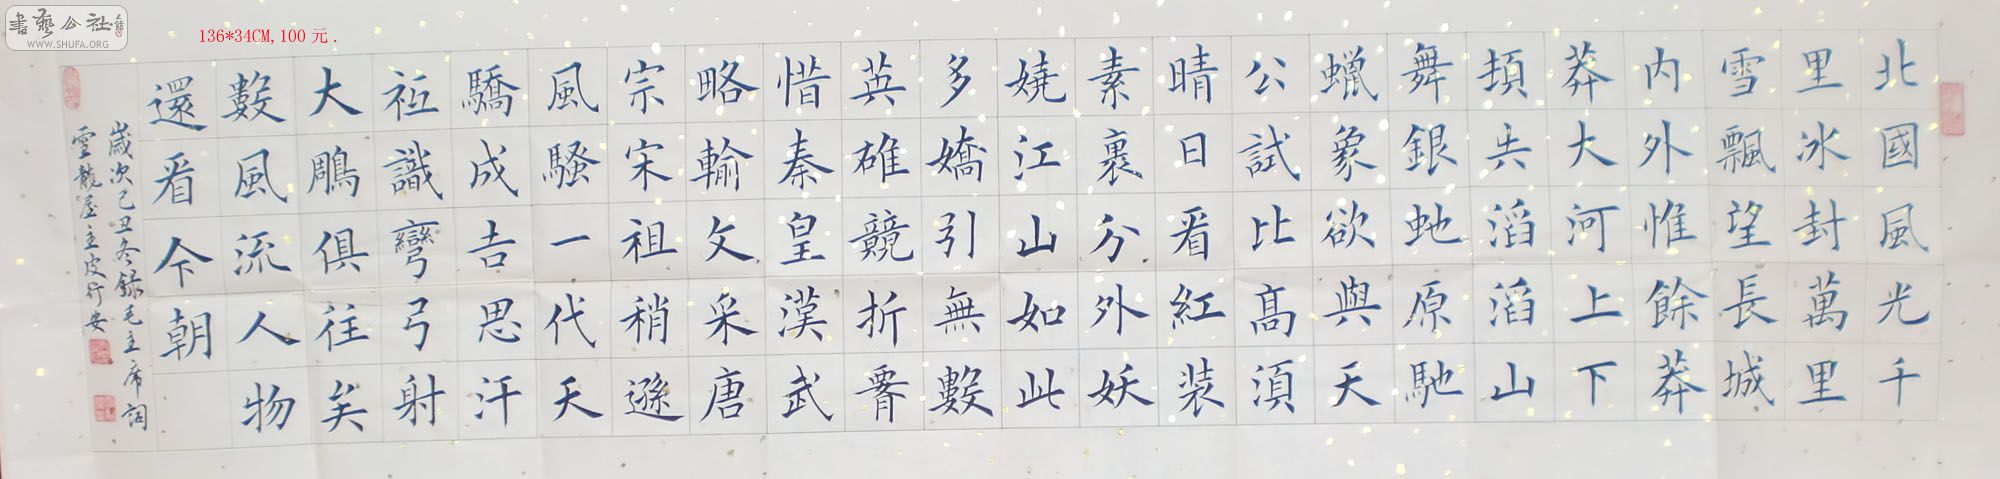 書藝公社
WWW.SHUFA.ORG
136*34CM,100元.
北國風光千
里冰封萬里
雪飄望長城
内外惟餘莽
莽大河上下
頓失滔滔山
舞銀虵原馳
蠟象欲與天
公試比髙須
晴日看紅装
素裹分外妖
嬈江山如此
多嬌引無數
英雄競折腰
惜秦皇漢武
略輸文采唐
宗宋祖稍遜
風騷一代天
驕成吉思汗
祗識彎弓射
大鵰俱往矣
數風流人物
還看今朝
歲次己丑冬錄毛主席詞
雪龍屋主皮行安